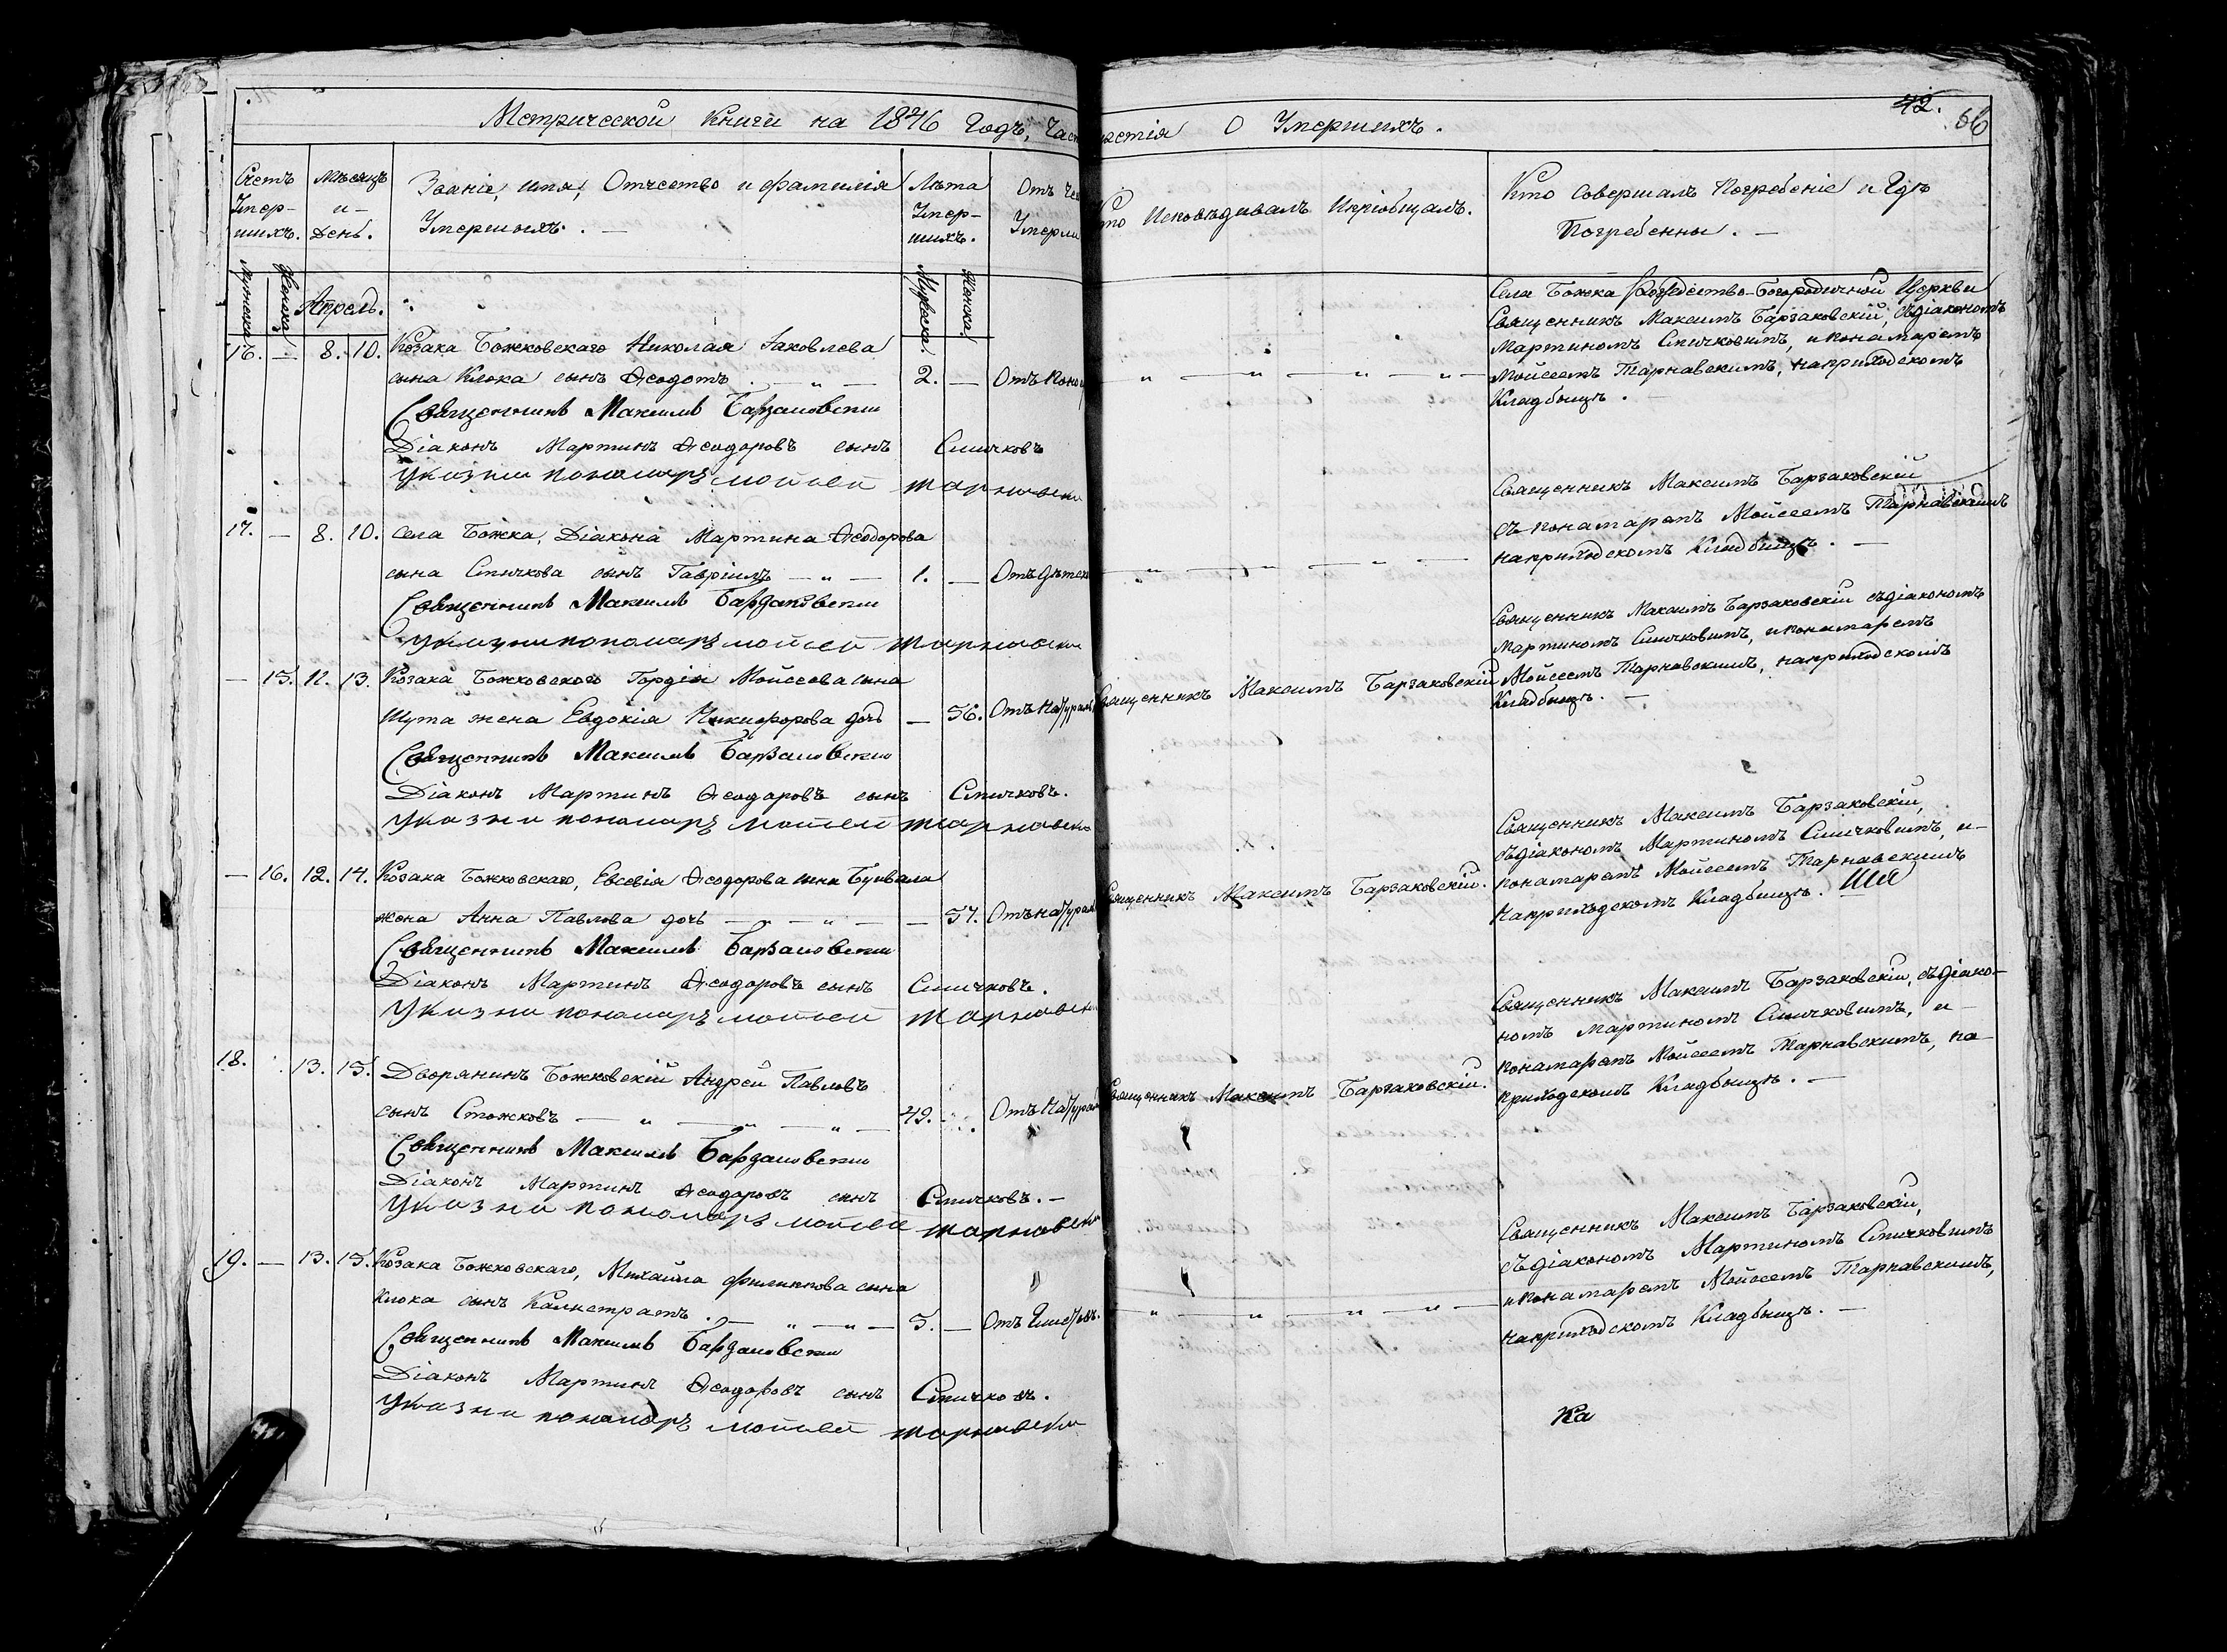 Метрической Книги на 1846 Годъ, Час
ретія О Умершихъ.
42.
66
Счетъ Умер-шихъ.
Мѣсяцъ и День.
Званіе, имя, Отчество и фамилія Умершихъ. —
Лѣта Умер-шихъ.
Отъ Чег Умерли
Кто Исповѣдивалъ Ипріобщалъ.
Кто Совершалъ Погребеніе и Гдѣ Погребенны. —
Мужеска
Женска
Апрель.
Мужеска.
Женска.
16. — 8. 10. Козака Божковскаго Николая Яковлева
сына Клока сынъ Ѳеодотъ . — „ — 2. — Отъ поно
Священникъ Максимъ Барзаковскій
Діаконъ Мартинъ Ѳеодоровъ сынъ Спичковъ
Указни пономаръ мойсей тарнавски
Села Божка Рождество-Богородичной Церкви
Священникъ Максимъ Барзаковскій, съдіакономъ
Мартиномъ Спичковимъ, ипонамаремъ
Мойсеемъ Тарнавскимъ, наприходскомъ
Кладбищѣ. —
17. — 8. 10. Села Божка, Діакона Мартина Ѳеодорова
сына Спичкова сынъ Гавріилъ — „ — 1. — Отъ дѣтск
Священникъ Максимъ Барзаковскій
Указни пономаръ мойсей тарнавски
Священникъ Максимъ Барзаковскій
съ понамаремъ Мойсеемъ Тарнавскимъ
наприходскомъ Кладбищѣ. —
— 15. 11. 13. Козака Божковского Гордія Мойсеева сина
Шута жена Евдокія Никифорова дочь — 56. Отъ Натурал
Священникъ Максимъ Барзаковскій
Діаконъ Мартинъ Ѳеодоровъ сынъ Спичковъ.
Указни пономаръ мойсей тарнавски
Священникъ Максимъ Барзаковскій
Священникъ Максимъ Барзаковскій съдіакономъ
Мартиномъ Спичковимъ, ипонамаремъ
Мойсеемъ Тарнавскимъ, наприходскомъ
Кладбищѣ. —
— 16. 12. 14. Козака Божковскаго, Евсевія Ѳеодорова сина Буквала
жена Анна Павлова дочь — „ — „ — — 57. Отъ натурал
Священникъ Максимъ Барзаковскій
Діаконъ Мартинъ Ѳеодоровъ сынъ Спичковъ.
Указни пономаръ мойсей тарнавски
Священникъ Максимъ Барзаковскій.
Священникъ Максимъ Барзаковскій,
съдіакономъ Мартиномъ Спичковимъ, и-
понамаремъ Мойсеемъ Тарнавскимъ
наприходскомъ Кладбищѣ.
18. 13. 15. Дворянинъ Божковскій Андрей Павловъ
сынъ Стожковъ — „ — „ — „ — 49. Отъ Натурал
Священникъ Максимъ Барзаковскій
Діаконъ Мартинъ Ѳеодоровъ сынъ Спичковъ. —
Указни пономаръ мойсей тарнавски
Священникъ Максимъ Барзаковскій.
Священникъ Максимъ Барзаковскій, съдіако-
номъ Мартиномъ Спичковимъ, и-
понамаремъ Мойсеемъ Тарнавскимъ, на-
приходскомъ Кладбищѣ. —
19. — 13. 15. Козака Божковскаго, Михаила Филиппова сина
Клока сынъ Калистратъ. — „ — „ — 5. —
Священникъ Максимъ Барзаковскій
Діаконъ Мартинъ Ѳеодоровъ сынъ Спичковъ.
Указни пономаръ мойсей тарнавски
Священникъ Максимъ Барзаковскій,
съдіакономъ Мартиномъ Спичковимъ
ипонамаремъ Мойсеемъ Тарнавскимъ,
наприходскомъ Кладбищѣ. —
Ка